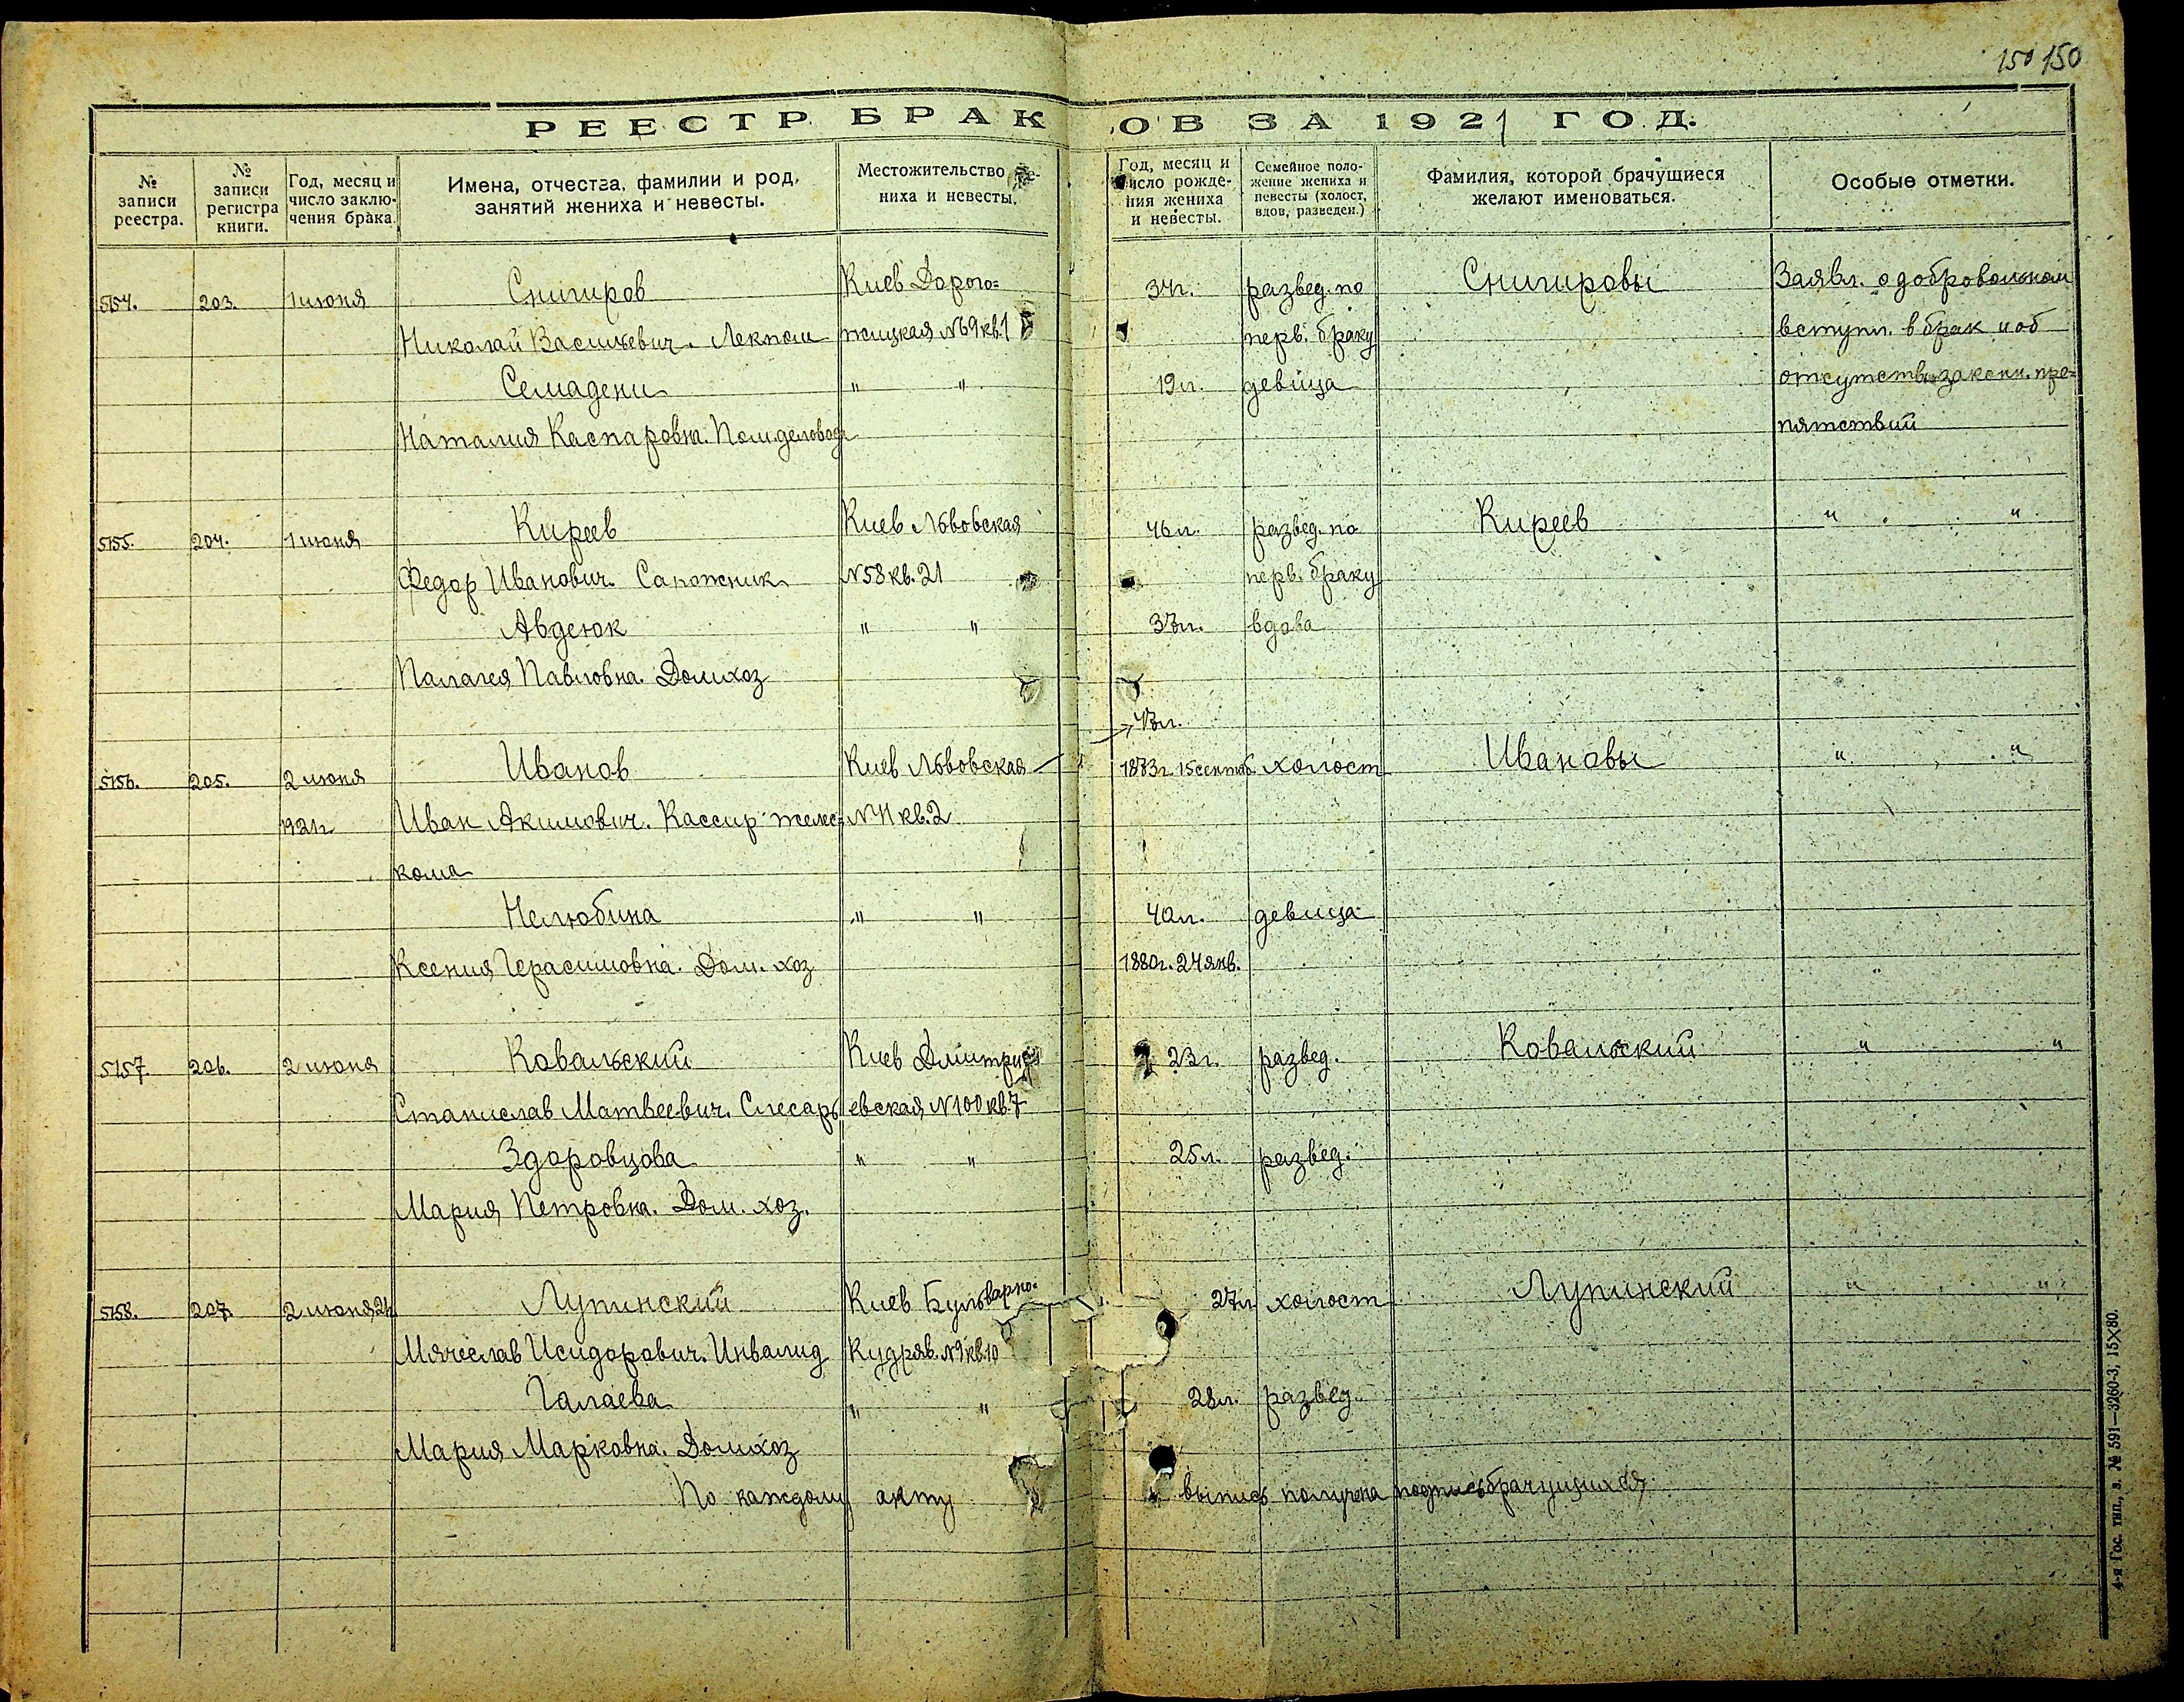 150 150
РЕЕСТР БРАКОВ ЗА 1921 ГОД.
№ записи реестра.
№ записи регистра книги.
Год, месяц и число заключения брака.
Имена, отчества, фамилии и род занятий жениха и невесты.
Местожительство жениха и невесты.
Год, месяц и число рождения жениха и невесты.
Семейное положение жениха и невесты (холост, вдов, разведен.)
Фамилия, которой брачущиеся желают именоваться.
Особые отметки.
5154. 203. 1 июня Снигиров Киев Дорого= 34г. развед. по Снигировы Заявл. о добровольном
Николай Васильевич. Лекпом жицкая №69 кв.1 перв. браку вступл. в брак и об
Семадени " " 19л. девица отсутств. законн. пре=
Наталия Каспаровна. Пом. деловод пятствий
5155. 204. 1 июня Киреев Киев Львовская 46л. развед. по Киреев " "
Федор Иванович. Сапожник №58 кв. 21 перв. браку
Авдеюк " " 33л. вдова
Палагея Павловна. Домхоз
43л.
5156. 205. 2 июня Иванов Киев Львовская 1873г. 15 сентяб. холост Ивановы " "
1921г. Иван Акимович. Кассир желес= №71 кв. 2
кома
Нелюбина " " 40л. девица
Ксения Герасимовна. Дом. хоз 1880г. 24 янв.
5157 206. 2 июня Ковальский Киев Дмитри 23г. развед. Ковальский " "
Станислав Матвеевич. Слесарь евская №100 кв. 7
Здоровцова " " 25л. развед.
Мария Петровна. Дом. хоз.
5158. 207. 2 июня 21г. Лупинский Киев Бульварно- 27л холост Лупинский " "
Мячеслав Исидорович. Инвалид Кудряв. №9 кв. 10
Галаева " " 28л. развед.
Мария Марковна. Домхоз
По каждому акту выпись получена подпись брачущихся
4-я Гос. тип., з. № 591—3260-3; 15×80.